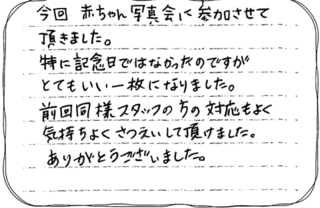 今回 赤ちゃん写真会に参加させて
頂きました。
特に記念日ではなかったのですが
とてもいい一枚になりました。
前回同様スタッフの方の対応もよく
気持ちよくさつえいして頂けました。
ありがとうございました。